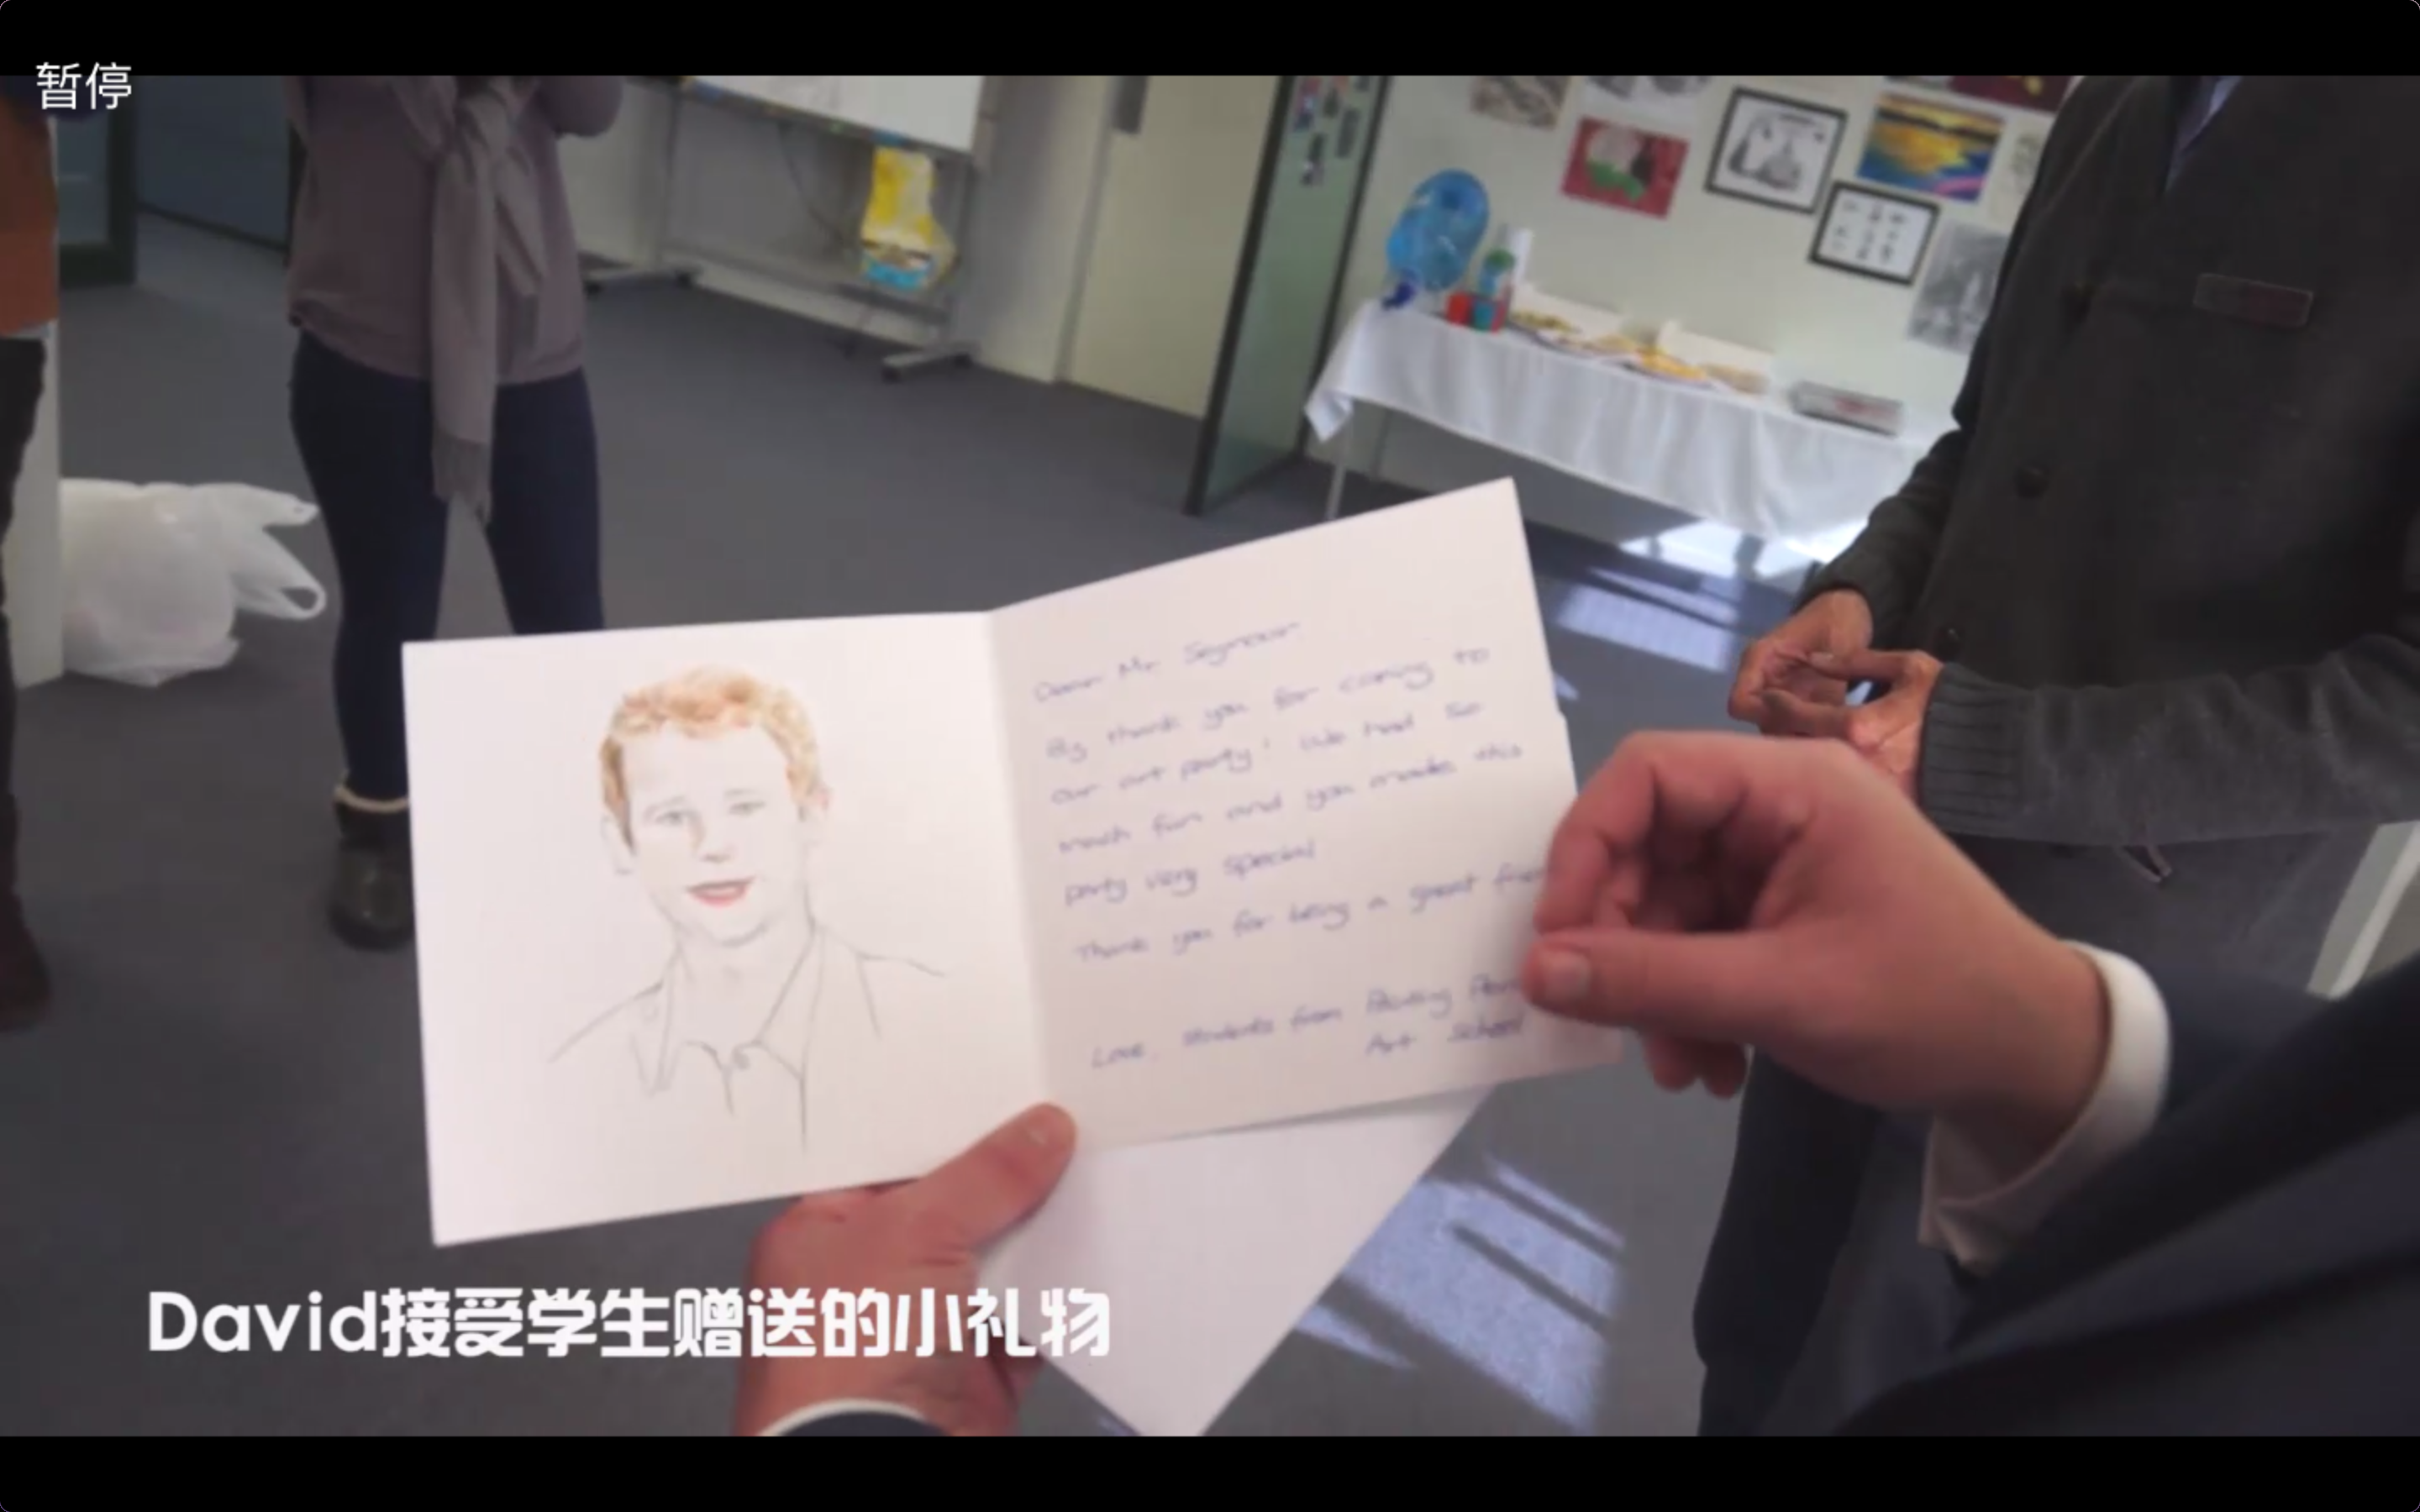 暂停
Dear Mr Seymour
Big thank you for coming to
our art party! We had so
much fun and you made this
party very special
Thank you for being a great
Love, students from
Art School
David接受学生赠送的小礼物